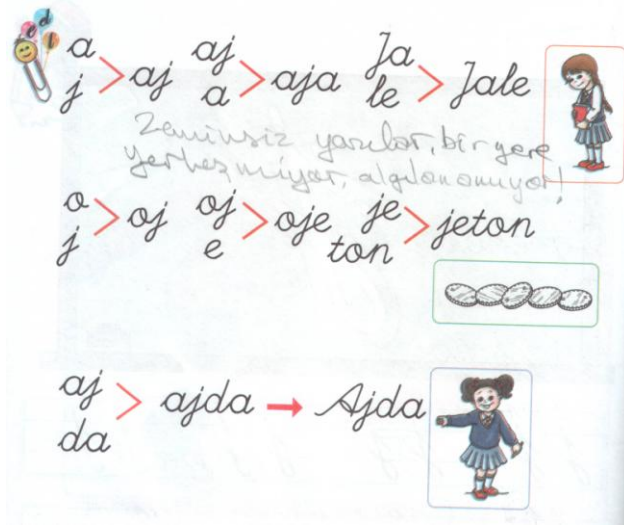 e d l
a j > aj aj a > aja Ja le > Jale
Zeminsiz yazılar, bir yere
yerleşmiyor, algılanamıyor!
o j > oj oj e > oje je ton > jeton
aj da > ajda → Ajda